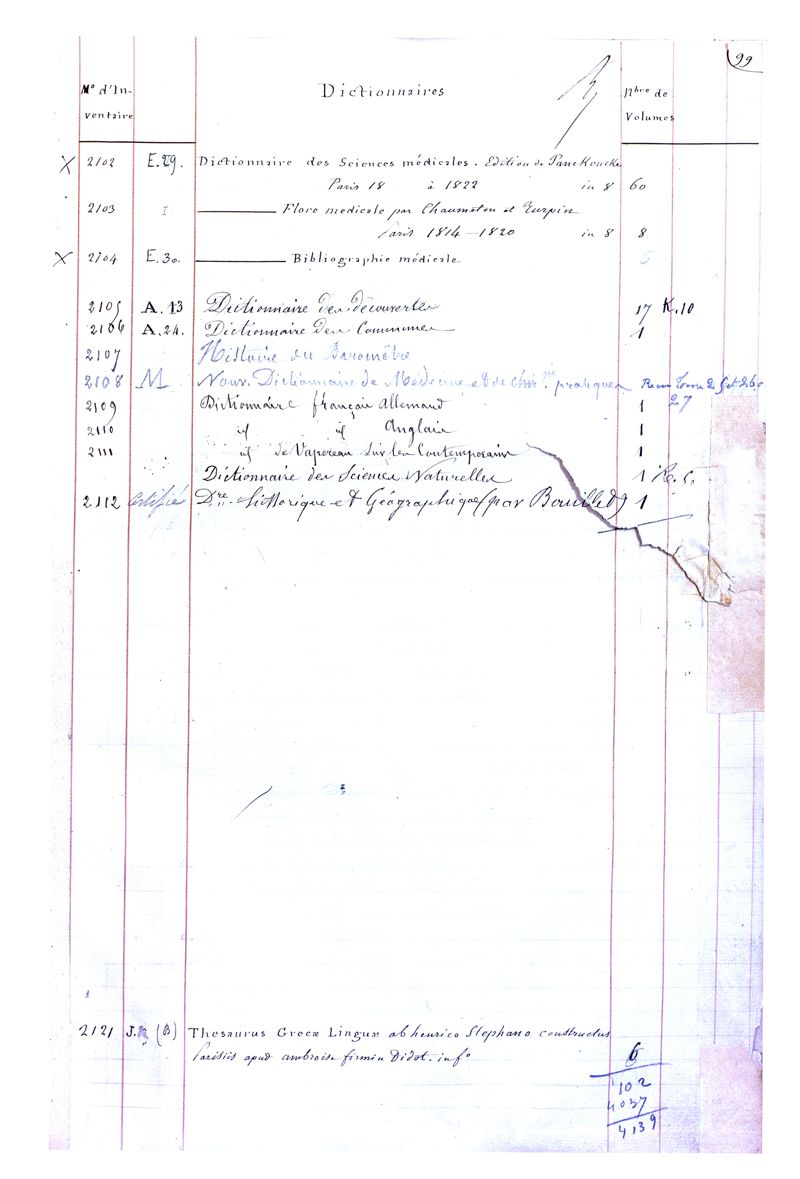 99
N° d'In- Dictionnaires Nbre de
ventaire Volumes
X 2102 E.29. Dictionnaire des Sciences médicales. Edition de Panckoucke
Paris 18 à 1822 in 8 60
2103 I Flore medicale par Chaumeton et Turpin
Paris 1814-1820 in 8 8
X 2104 E.30. Bibliographie médicale 6
2105 A.13 Dictionnaire des découvertes 17 K.10
2106 A.24. Dictionnaire des Communes 1
2107 Histoire du Baromètre
2108 M Nouv. Dictionnaire de Médecine et de chir.gie pratiques
27
2109 Dictionnaire français Allemand 1
2110 id id Anglais 1
2111 id de Vapereau sur les Contemporains 1
Dictionnaire des Sciences Naturelles 1
2112 Certifié Dre Historique et Géographique (par Bouillet) 1
2121 J. (B) Thesaurus Grecæ Linguæ ab henrico Stephano constructus
Parisiis apud ambroise firmin Didot. in f° 6
102
4037
4139